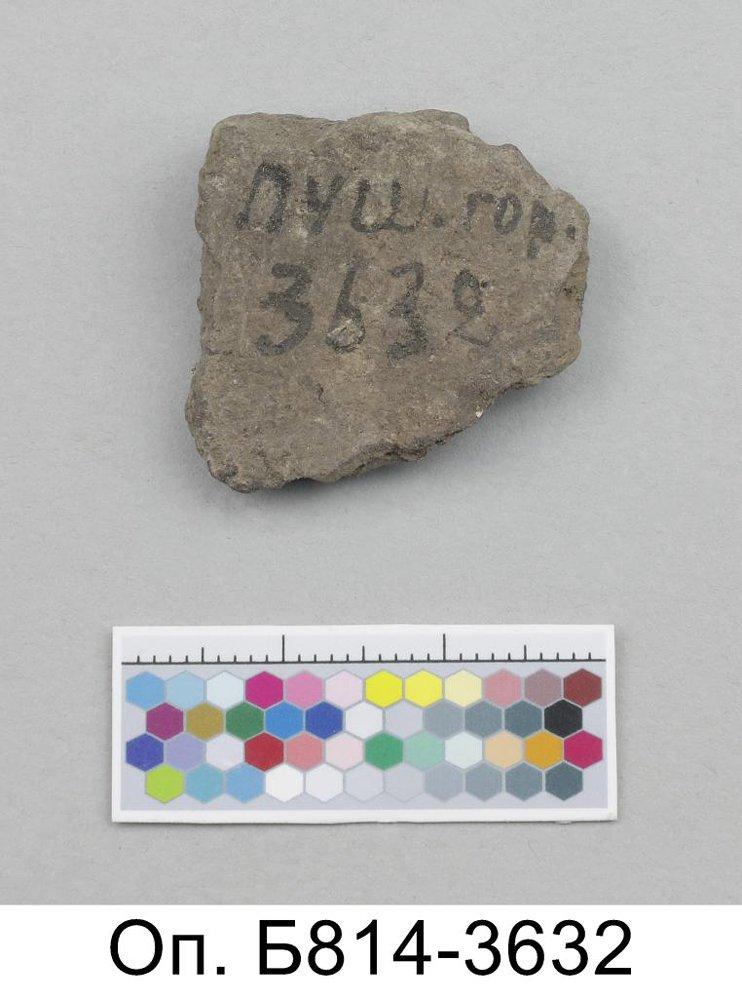 Пуш. гор.
3632
Оп. Б814-3632